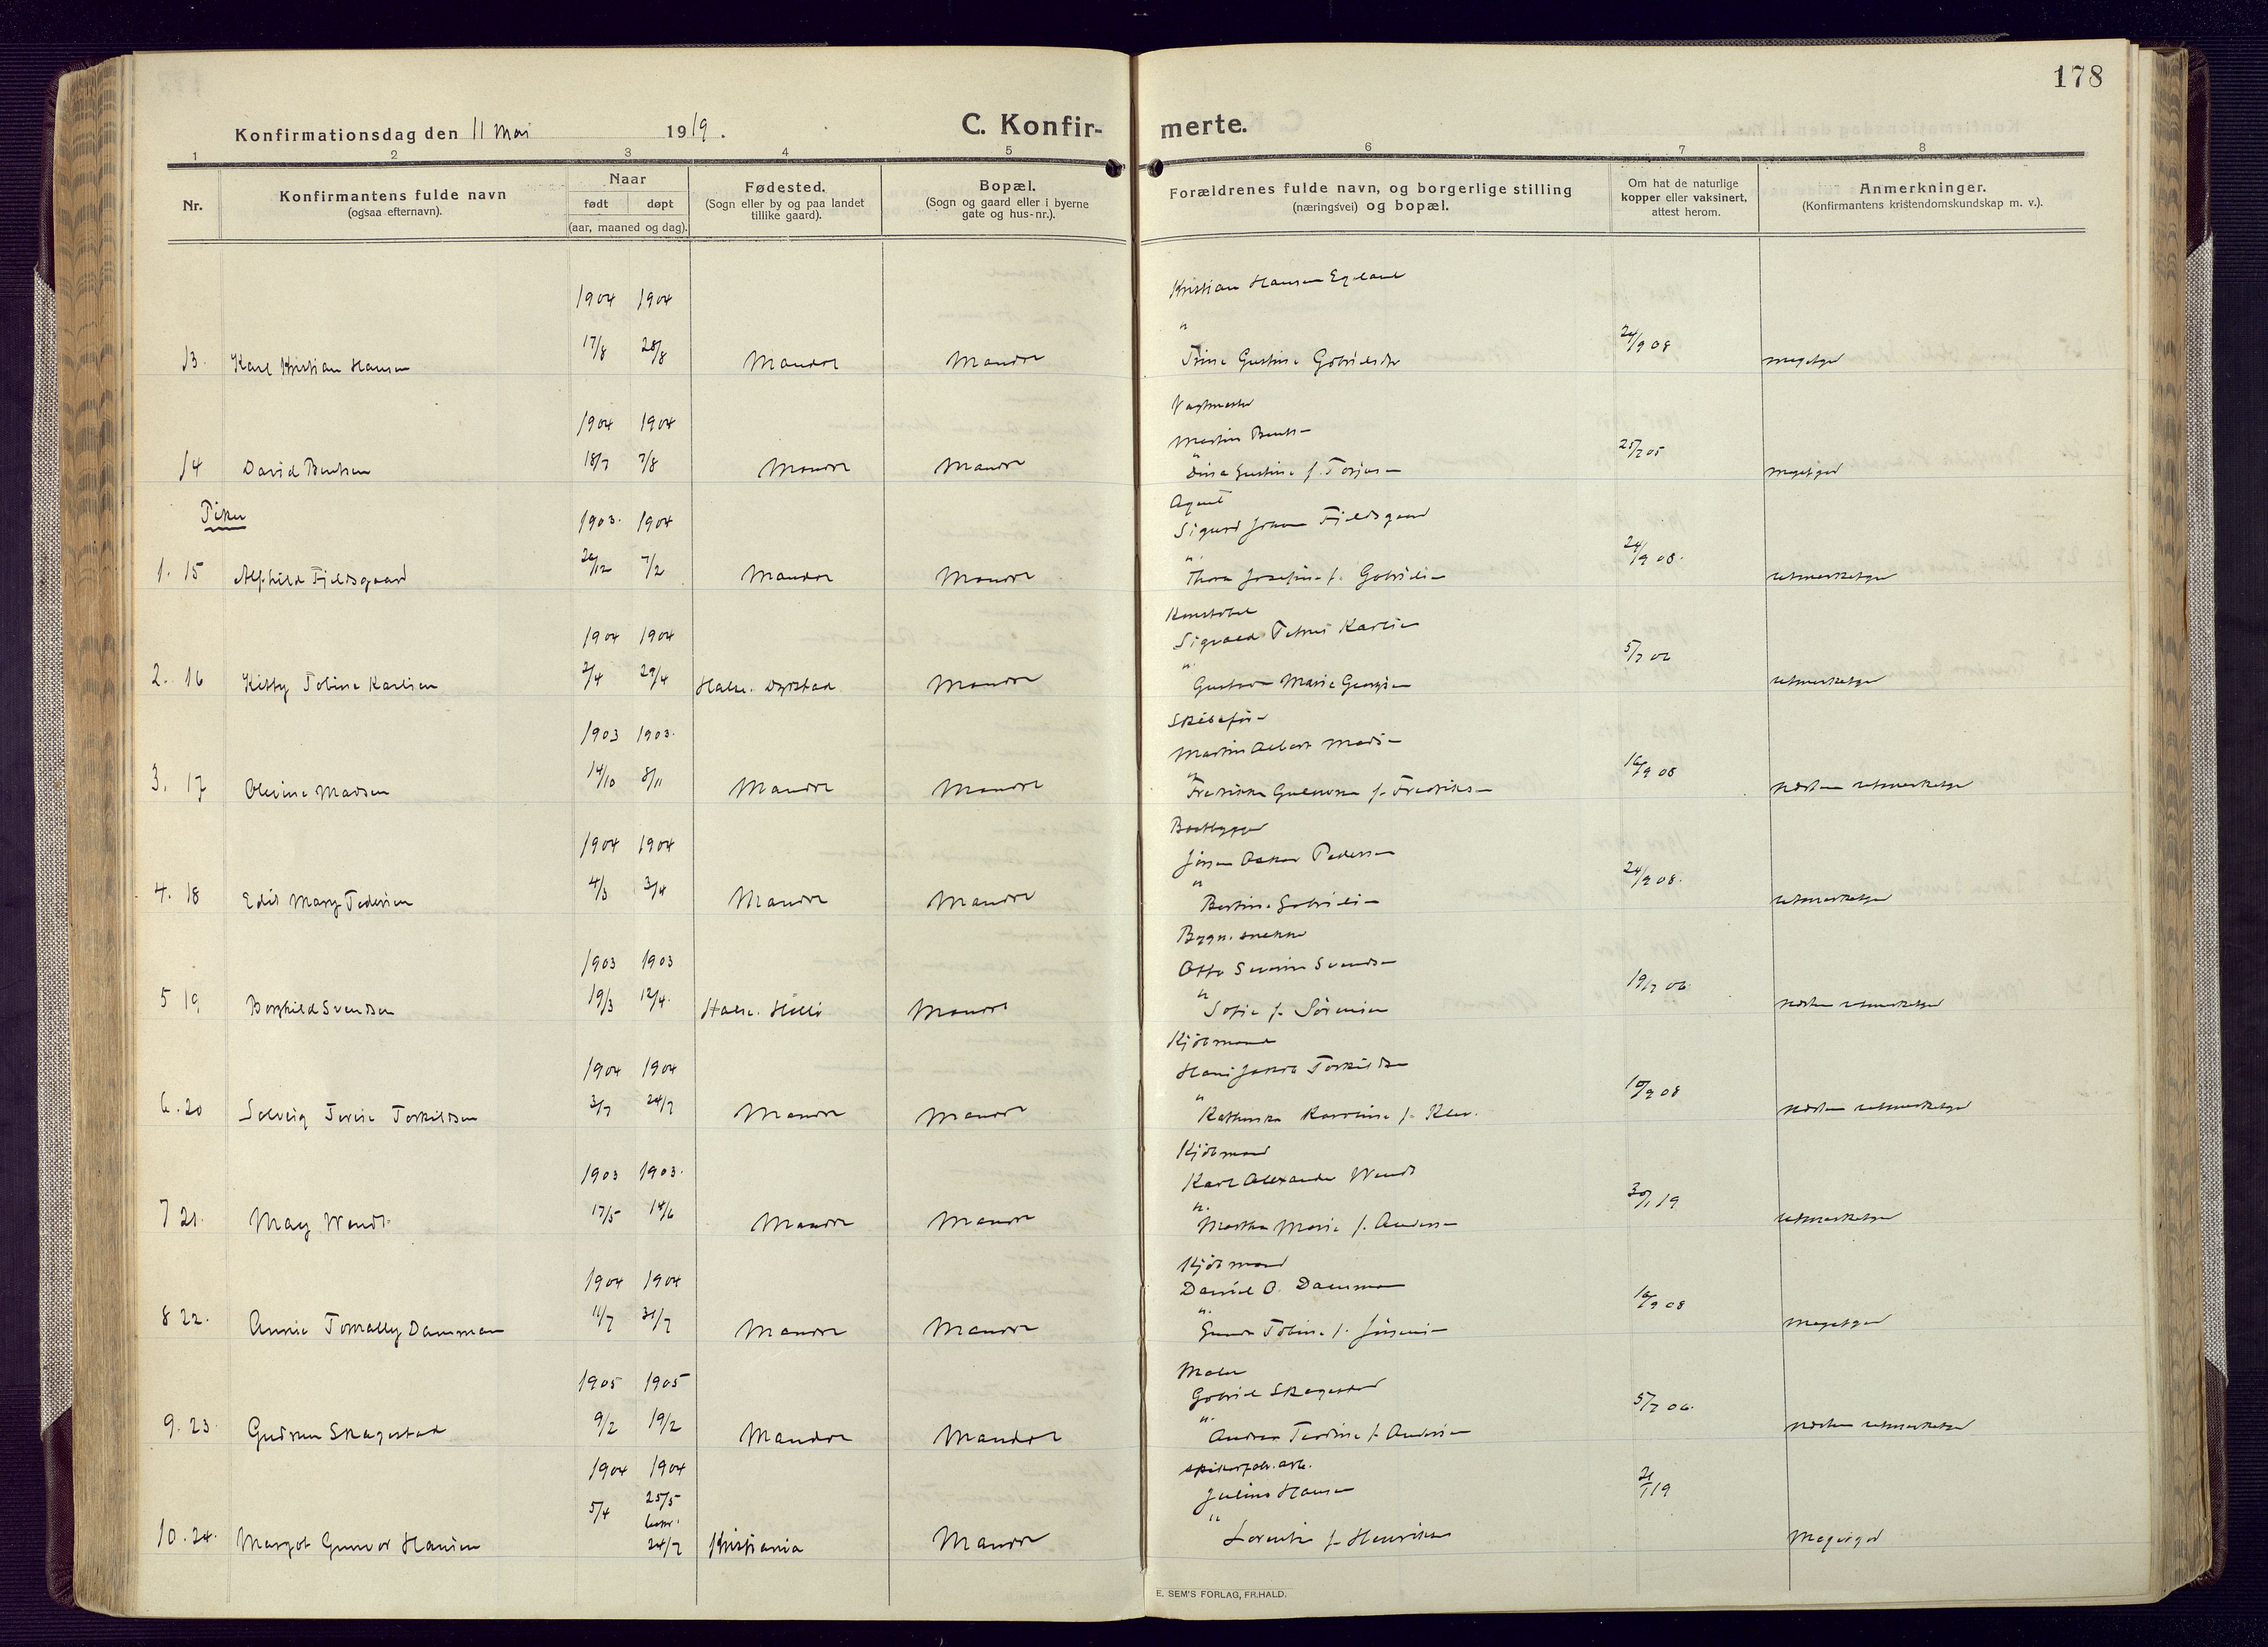 178
Konfirmationsdag den 11 Mai 1919.
C. Konfirmerte.
1 2 3 4 5 6 7 8
Nr.
Konfirmantens fulde navn
(ogsaa efternavn).
Naar
født døpt
(aar, maaned og dag).
Fødested.
(Sogn eller by og paa landet
tillike gaard).
Bopæl.
(Sogn og gaard eller i byerne
gate og hus-nr.).
Forældrenes fulde navn, og borgerlige stilling
(næringsvei) og bopæl.
Om hat de naturlige
kopper eller vaksinert,
attest herom.
Anmerkninger.
(Konfirmantens kristendomskundskap m. v.).
Kristian Hansen Egeland
1904 1904
"
13. Karl Kristian Hansen 17/8 28/8 Mandal Mandal Gustine Gabrielsdtr 24/9 08 megetgod
1904 1904
Martin Bents-
14 David Bentsen 18/7 7/8 Mandal Mandal " Gustine f. Torjus- 25/7 05 megetgod
Piker
Agent
1903. 1904 Sigurd Johan Fjeldsgaard
1. 15 Alfhild Fjeldsgaard 7/2 Mandal Mandal " Thora Josefine f. Gabrielsen 24/9 08. udmerketgod
Konstabel
1904 1904 Sigvald Petrus Karlsen
2. 16 Kitty Tobine Karlsen 2/4 29/4 Halse. Dyrstad Mandal " Gustava Marie 5/7 06 udmerketgod
Skibsfør-
1903 1903. Martin Albert Mads-
3. 17 Olevine Madsen 14/10 8/11 Mandal Mandal " Fredrikke f. Fredriks- 16/9 08 næsten udmerketgod
Baatbygger
1904 1904 Jørgen Oskar Pedersen
4. 18 Edit Mary Pedersen 4/3 3/4 Mandal Mandal " Bertine Gabrielsen 24/9 08. udmerketgod
Bygn. snekker
1903 1903 Otto Severin Svends-
5 19 Borghild Svendsen 19/3 12/4. Halse. Mandal " Sofie f. Sørensen 19/7 06 næsten udmerketgod
Kjøbmand
1904 1904 Hans Jakob Torkildsen
6. 20 Solveig Torkildsen 3/7 24/7 Mandal Mandal " Kathinka Karoline f. 10/9 08 næsten udmerketgod
Kjøbmand
1903 1903. Karl Alexander Wendt
7 21. May Wendt 17/5 14/6 Mandal Mandal " Martha Marie f. Anders- 30/1 19 udmerketgod
Kjøbmand
1904 1904 Daniel O. Damman
8 22. Annie Damman 11/7 31/7 Mandal Mandal " Tobine f. Jørgens- 16/9 08 Megetgod
Maler
1905 1905 Gabriel Skagestad
9. 23. Gudrun Skagestad 9/2 19/2 Mandal Mandal " Andrea f. Andersen 5/7 06. næsten udmerketgod
1904 1904
5/4 25/5 Julius Hansen 21/1 19
10. 24. Margot Gunvor Hansen 24/7 Kristiania Mandal " Lorentse f. Henriks- Megetgod
E. SEM'S FORLAG, FR.HALD.